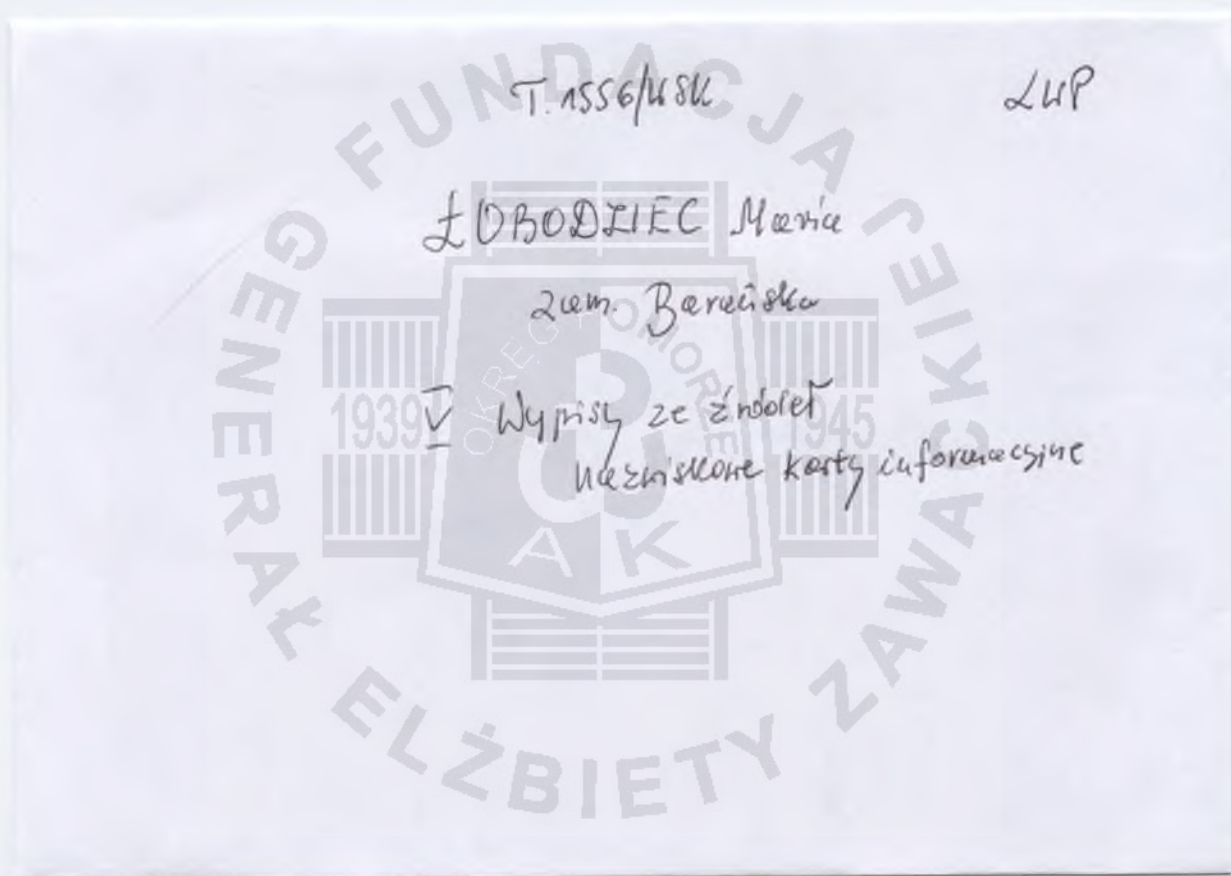 T. 1556/WSK LWP
ŁOBODZIEC Maria
zam. Barańska
V Wypisy ze źródeł
nazwiskowe karty informacyjne
FUNDACJA GENERAŁ ELŻBIETY ZAWACKIEJ
OKRĘG POMORZE
1939 1945
AK